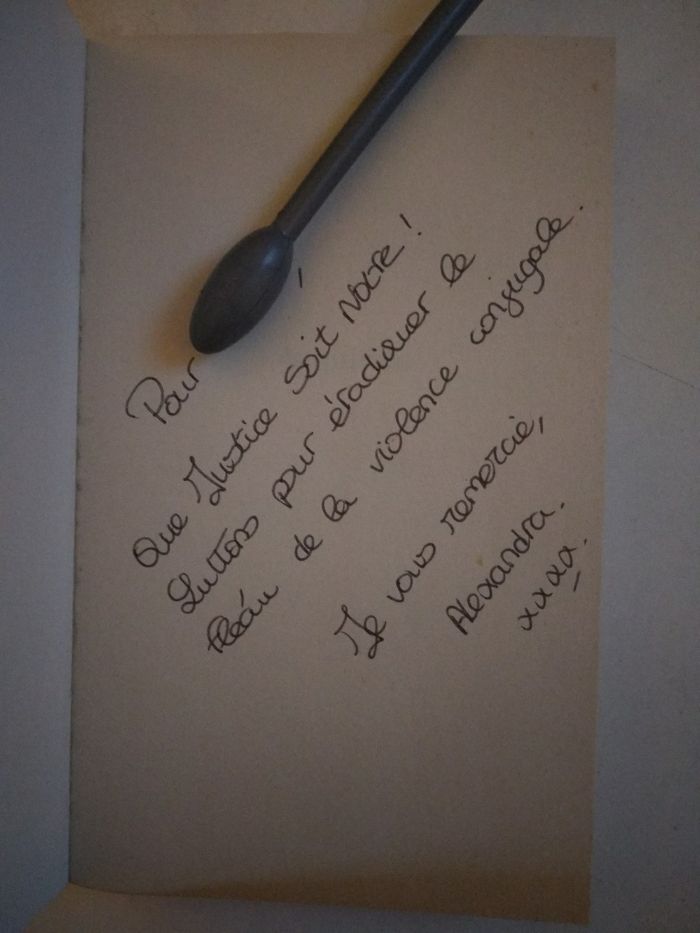 Pour
Que Justice Soit Notre !
Luttons pour éradiquer le
fléau de la violence conjugale.
Je vous remercie,
Alexandra.
xxxx.